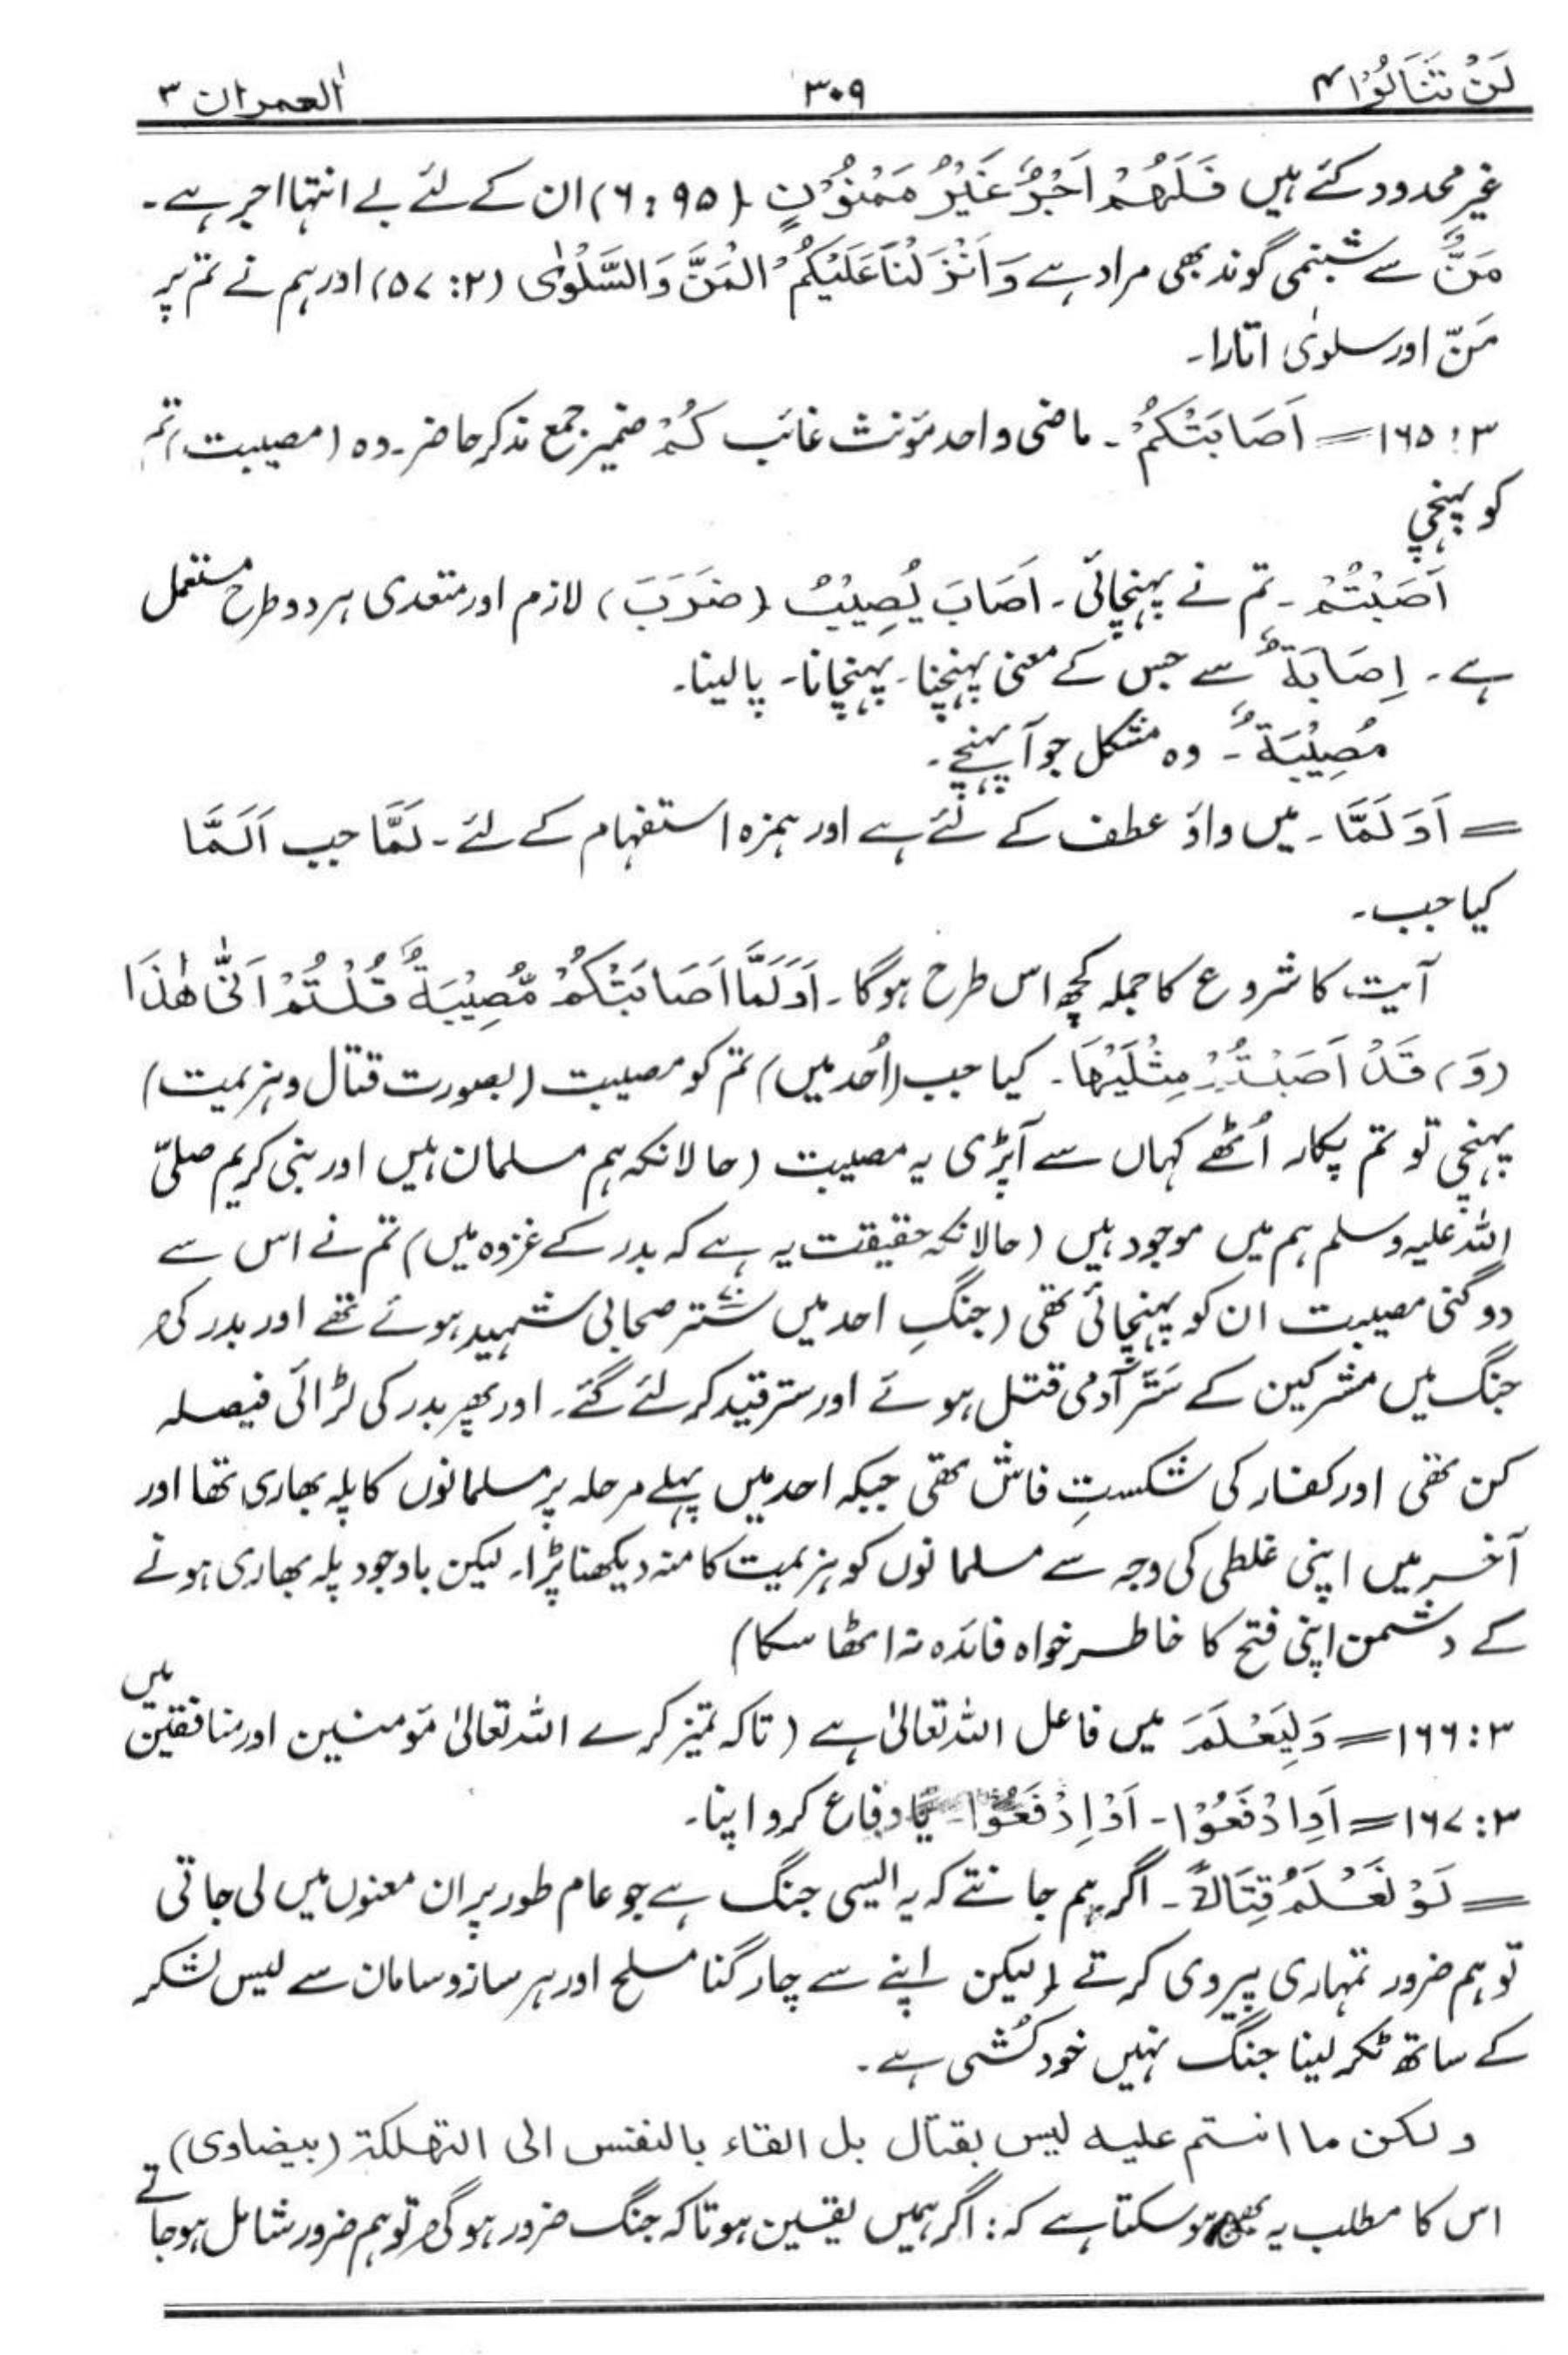 لَنْ تَنَالُوْا ۴ ۳۰۹ اٰلعمران ۳
غیر محدود کئے ہیں فَلَهُمْ اَجْرٌ غَيْرُ مَمْنُوْنٍ (۹۵ : ۶) ان کے لئے بے انتہا اجر ہے۔
مَنٌّ سے شبنمی گوند بھی مراد ہے وَاَنْزَلْنَا عَلَيْكُمُ الْمَنَّ وَالسَّلْوٰى (۲: ۵۷) اور ہم نے تم پر
مَنّ اور سلوٰی اتارا۔
۳: ۱۶۵ = اَصَابَتْكُمْ۔ ماضی واحد مؤنث غائب كُمْ ضمیر جمع مذکر حاضر۔ وہ (مصیبت) تم
کو پہنچی
اَصَبْتُمْ۔ تم نے پہنچائی۔ اَصَابَ يُصِيْبُ (ضَرَبَ) لازم اور متعدی ہر دو طرح مستعمل
ہے۔ اِصَابَةٌ سے جس کے معنی پہنچنا۔ پہنچانا۔ پالینا۔
مُصِيْبَةٌ۔ وہ مشکل جو آپہنچے۔
= اَوَلَمَّا۔ میں واؤ عطف کے لئے ہے اور ہمزہ استفہام کے لئے۔ لَمَّا جب اَلَمَّا
کیا جب۔
آیت کا شروع کا جملہ کچھ اس طرح ہوگا۔ اَوَلَمَّا اَصَابَتْكُمْ مُّصِيْبَةٌ قُلْتُمْ اَنّٰى هٰذَا
(وَ) قَدْ اَصَبْتُمْ مِثْلَيْهَا۔ کیا جب (اُحد میں) تم کو مصیبت (بصورت قتال و ہزیمت)
پہنچی تو تم پکار اُٹھے کہاں سے آپڑی یہ مصیبت (حالانکہ ہم مسلمان ہیں اور نبی کریم صلّی
اللہ علیہ وسلم ہم میں موجود ہیں (حالانکہ حقیقت یہ ہے کہ بدر کے غزوہ میں) تم نے اس سے
دوگنی مصیبت ان کو پہنچائی تھی (جنگِ احد میں ستّر صحابی شہید ہوئے تھے اور بدر کی
جنگ میں مشرکین کے سَتّر آدمی قتل ہوئے اور ستر قید کر لئے گئے۔ اور پھر بدر کی لڑائی فیصلہ
کن تھی اور کفار کی شکستِ فاش تھی جبکہ احد میں پہلے مرحلہ پر مسلمانوں کا پلہ بھاری تھا اور
آخر میں اپنی غلطی کی وجہ سے مسلمانوں کو ہزیمت کا منہ دیکھنا پڑا۔ لیکن باوجود پلہ بھاری ہونے
کے دشمن اپنی فتح کا خاطر خواہ فائدہ نہ اٹھا سکا)
۳: ۱۶۶ = وَلِيَعْلَمَ میں فاعل اللہ تعالیٰ ہے (تاکہ تمیز کرے اللہ تعالیٰ مؤمنین اور منافقین میں
۳: ۱۶۷ = اَوِادْفَعُوْا۔ اَوْ اِدْفَعُوْا۔ یا دفاع کرو اپنا۔
= لَوْ نَعْلَمُ قِتَالًا۔ اگر ہم جانتے کہ یہ ایسی جنگ ہے جو عام طور پر ان معنوں میں لی جاتی
تو ہم ضرور تمہاری پیروی کرتے (لیکن اپنے سے چار گنا مسلح اور ہر ساز و سامان سے لیس لشکر
کے ساتھ ٹکر لینا جنگ نہیں خود کُشی ہے۔
ولكن ما انتم عليه ليس بقتال بل القاء بالنفس الى التهلكة (بیضاوی)
اس کا مطلب یہ بھی ہو سکتا ہے کہ: اگر ہمیں یقین ہوتا کہ جنگ ضرور ہوگی تو ہم ضرور شامل ہوجاتے